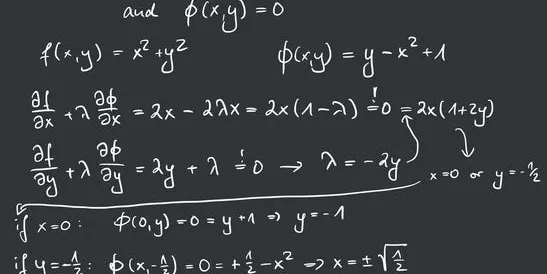 and ϕ(x,y) = 0
f(x,y) = x² + y² ϕ(x,y) = y - x² + 1
∂f/∂x + λ ∂ϕ/∂x = 2x - 2λx = 2x(1-λ) =! 0 = 2x(1+2y)
∂f/∂y + λ ∂ϕ/∂y = 2y + λ =! 0 → λ = -2y
x=0 or y=-1/2
if x=0: ϕ(0,y) = 0 = y+1 ⇒ y = -1
if y=-1/2: ϕ(x,-1/2) = 0 = +1/2 - x² ⇒ x = ± √(1/2)